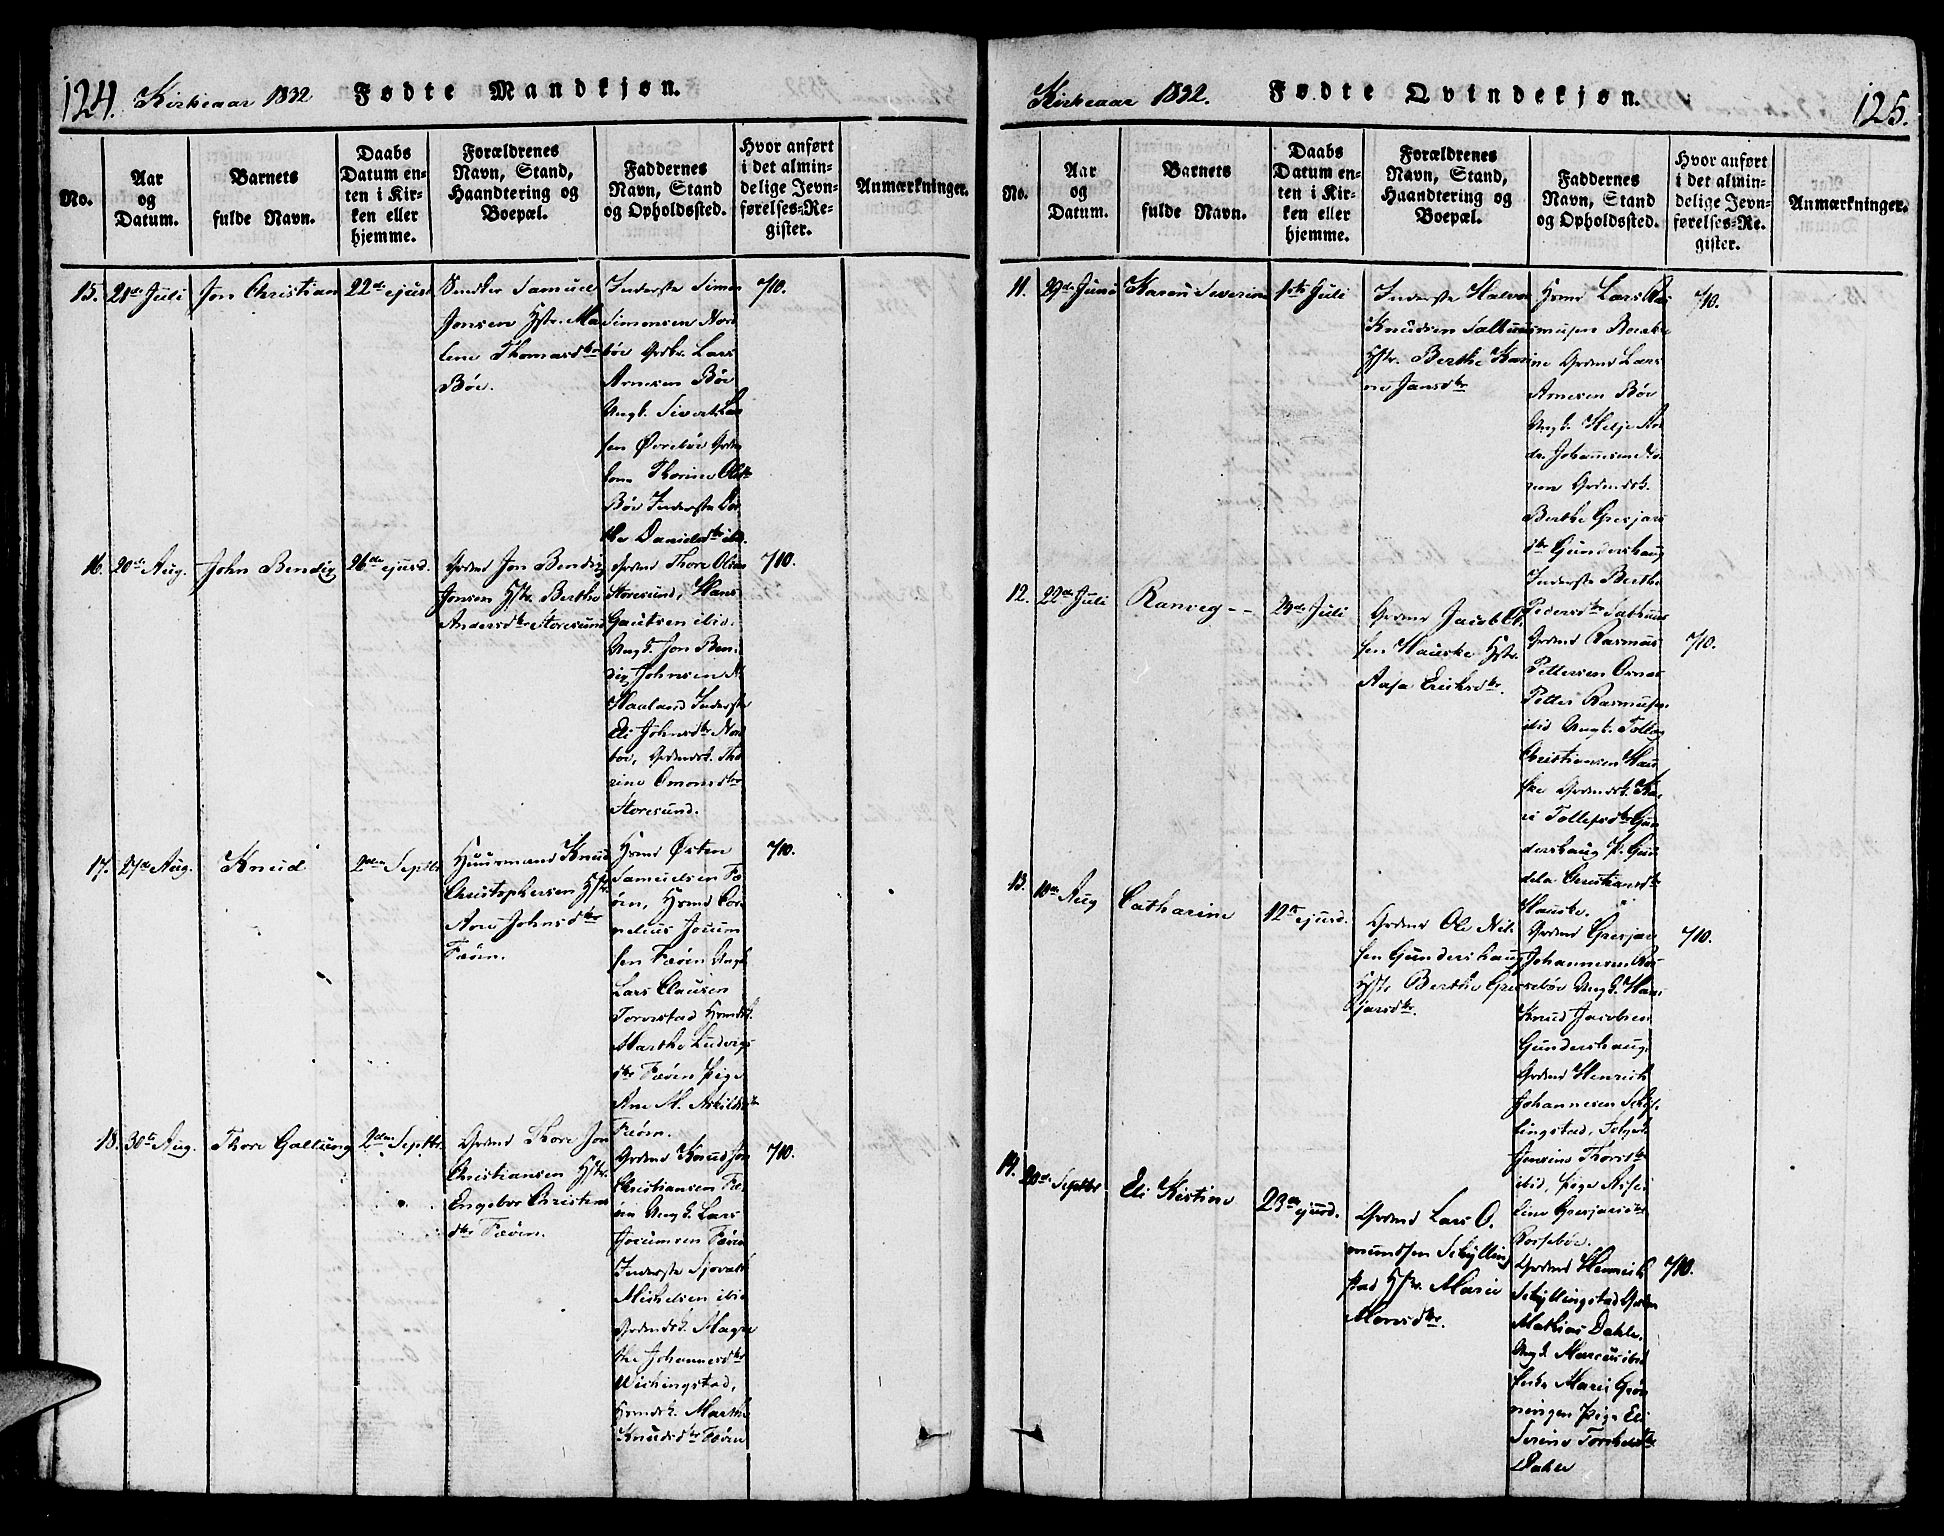 124. Kirkeaar 1832 Fødte Mandkjøn.
No.
Aar
og
Datum.
Barnets
fulde Navn.
Daabs
Datum en-
ten i Kir-
ken eller
hjemme.
Forældrenes
Navn, Stand,
Haandtering og
Boepæl.
Faddernes
Navn, Stand
og Opholdssted.
Hvor anført
i det almin-
delige Jevn-
førelses-Re-
gister.
Anmærkninger.
15. 21de Juli Jon Christian 22de ejusd
Samuel
Jonsen Hstr. Ma
lene Thomasdtr
Bøe.
Inderste Simon
Simonsen Nor
bøe Grdbr. Lars
Arnesen Bøe
Ungk. Sivert Lar
sen Øvrebøe
kone Thorine Olsdtr
Bøe Inderste Dor
the Danielsdtr ibid.
710.
16. 20de Aug. John Bendix 26de ejusd.
Grdmd Jon Bendix
Jonsen Hstr. Berthe
Andersdtr Storesund
Grdmd Thore Olsen
Storesund, Hans
Gautsen ibid.
Ungk. Jon Ben-
dix Johnsen
Haaland Inderste
Eli Johnsdtr Nor
bøe, Grdmdsk. Tho
rine Omonsdtr
Storesund.
710.
17. 27de Aug. Knud 2den Septbr
Huusmand Knud
Christophersen Hstr.
Ane Johnsdtr
Færøen.
Hsmd Østen
Samuelsen Fæ
øen, Hsmd Cor
nelius Joum
sen Fæøen Ungk.
Lars Clausen
Torvestad Hsmdsk.
Marthe Ludvigs
dtr Fæøen Pige
Ane M. Askildsdtr
Fæøen.
710.
18. 30te Aug. Thore Galtung 2den Septbr.
Grdmd Thore Jon
Christiansen Hstr.
Engebor Christens
dtr Fæøen.
Grdmd Knud Jon
Christiansen Fæ
øen Ungk. Lars
Jocumsen Fæøen
Inderste Sjovat
Michelsen ibid
Grdmdsk. Magre
the Johannesdtr
Wichingstad,
Hsmdsk. Marthe
Knudsdtr Fæøen
710.
Kirkeaar 1832. Fødte Qvindekjøn. 125.
No.
Aar
og
Datum.
Barnets
fulde Navn.
Daabs
Datum en-
ten i Kir-
ken eller
hjemme.
Forældrenes
Navn, Stand,
Haandtering og
Boepæl.
Faddernes
Navn, Stand
og Opholdssted.
Hvor anført
i det almin-
delige Jevn-
førelses-Re-
gister.
Anmærkninger.
11. 29de Juni Karen Severine 1ste Juli
Inderste Halvor
Knudsen Salhuus
Hstr. Berthe Kari
ne Jansdtr
Hsmd Lars Ras
musen
Grdmd Lars
Arnesen Bøe
Ungk. Helje
Johannsen
Grdmdsk.
Berthe Gresjars
dtr Gundershaug
Inderste Berthe
Pedersdtr Salhuus
710.
12. 22de Juli Ranveg -- 29de Juli
Grdmd Jacob
sen Hauske Hstr.
Aasa Eriksdtr.
Grdmd Rasmus
Pettersen Ornes
Petter Rasmusen
ibid Ungk. Tolleg
Christiansen Hau
ske Grdmdsk. Ka
ri Tollefsdtr Gun
dershaug P. Gun
dela Christiansdtr
Hauske.
710.
13. 10de Aug Catharine 12te ejusd.
Grdmd Ole Nil
sen Gundershaug
Hstr. Berthe Gres
jarsdtr.
Grdmd Gresjar
Johannesen Ros-
sebøe Ungk. Hans
Knud Jacobsen
Gundershaug.
Grdmd Henrich
Johannesen Schyl-
lingstad,
Thorsdtr
ibid, Pige Asse
line Gresjarsdtr
Rossebøe.
710.
14. 20de Septbr Eli Kistine 23de ejusd.
Grdmd Lars O.
mundsen Schylling
stad Hstr. Marie
Monsdtr.
Grdmd Henrich
Schyllingstad
Mathias Dahle,
Ungk. Marcus ibid
Enke Marie Grøn
ningen Pige Eli
Serine Torkelsdtr
Dahle
710.